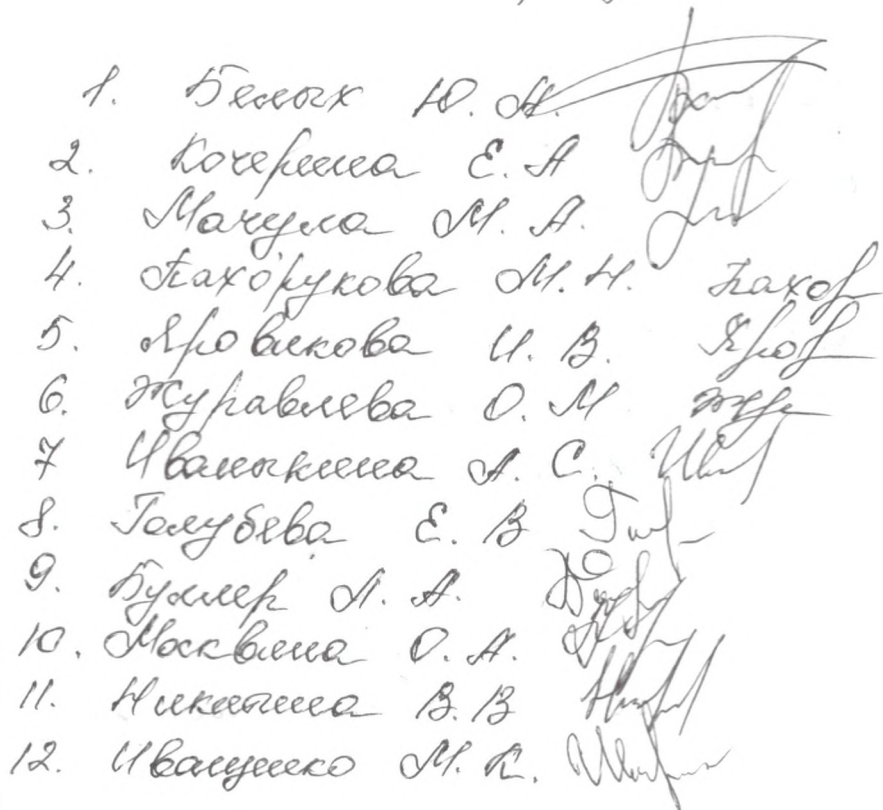 1. Белых Ю. А.
2. Кочерина Е. А
3. Мачула М. А.
4. Пахорукова М. Н. Пахор
5. Яровикова И. В. Яров
6. Журавлева О. М
7 Иванькина А. С.
8. Голубева Е. В
9. Буллер Л. А.
10. Москвина О. А.
11. Никитина В. В
12. Иващенко М. К.